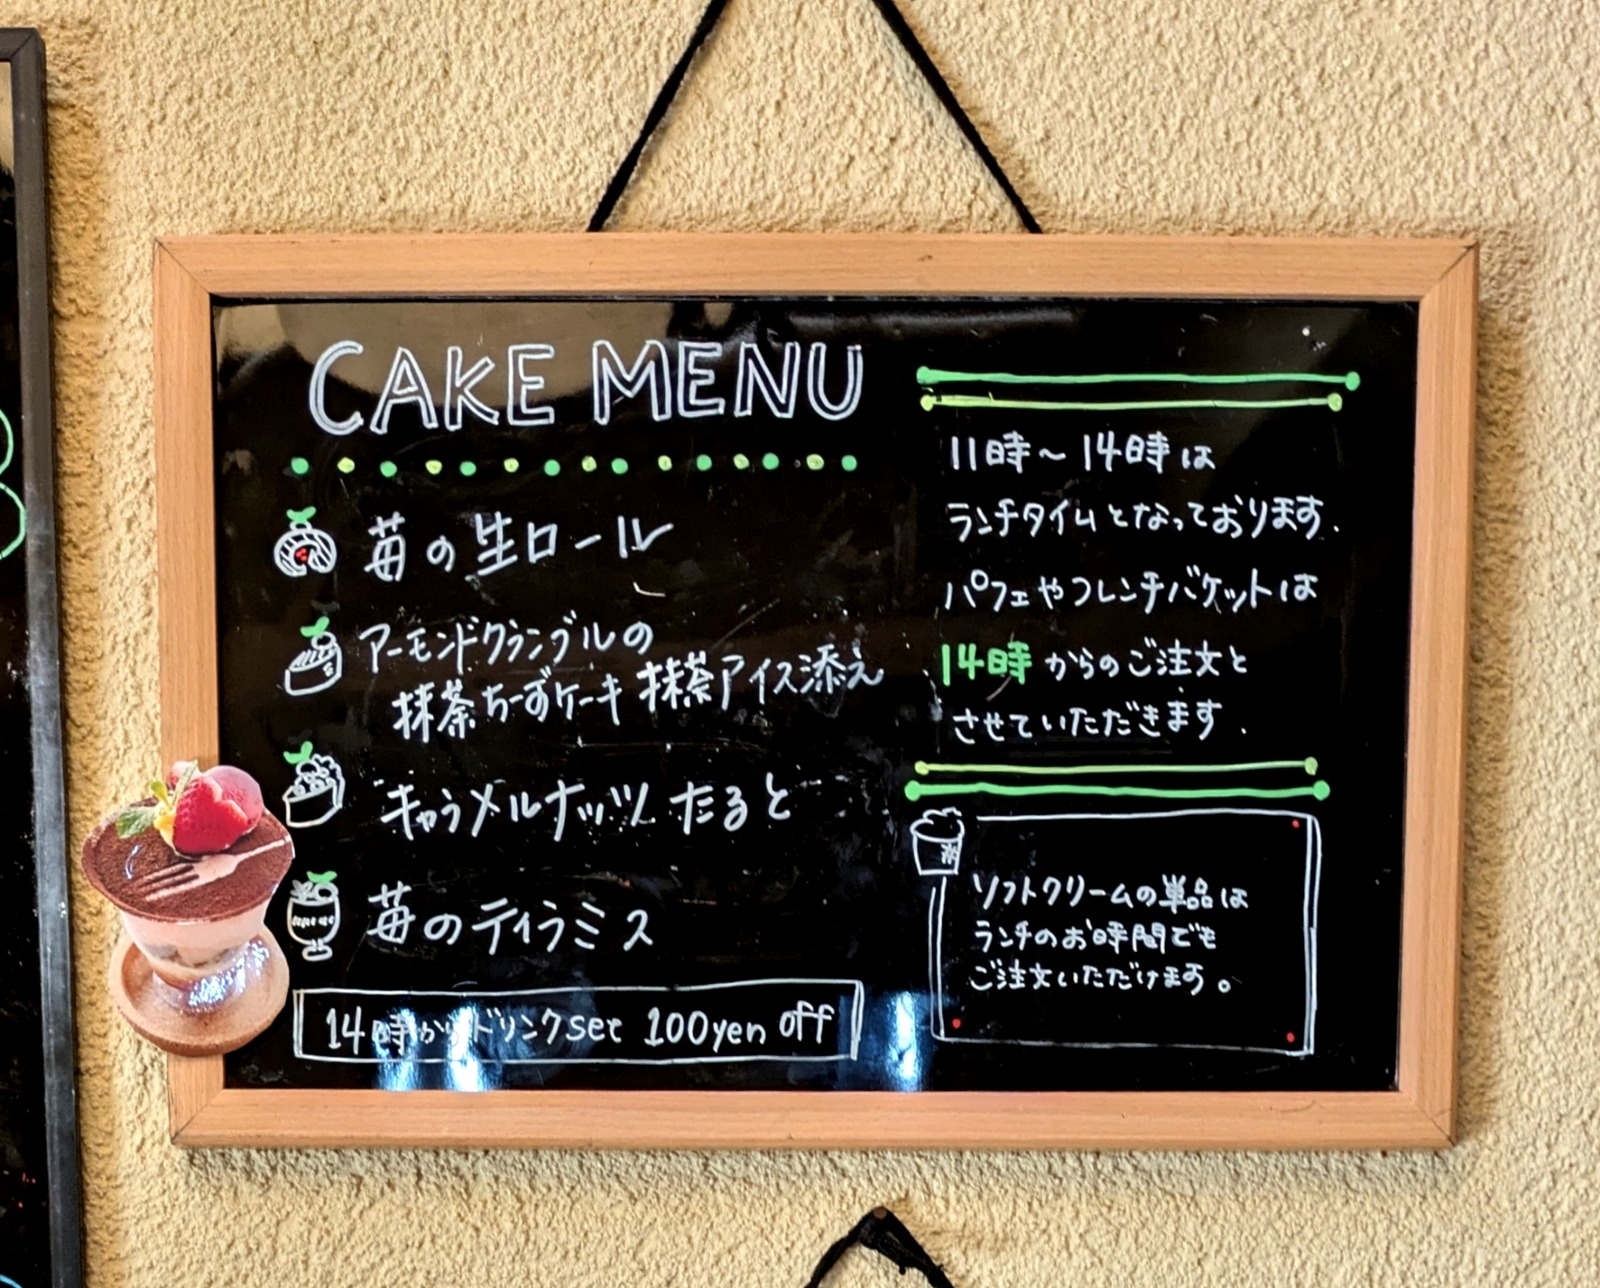 CAKE MENU
苺の生ロール
アーモンドクランブルの
抹茶ちーずケーキ 抹茶アイス添え
キャラメルナッツ たると
苺のティラミス
14時からドリンクset 100yen off
11時～14時は
ランチタイムとなっております.
パフェやフレンチバケットは
14時からのご注文と
させていただきます.
ソフトクリームの単品は
ランチのお時間でも
ご注文いただけます。